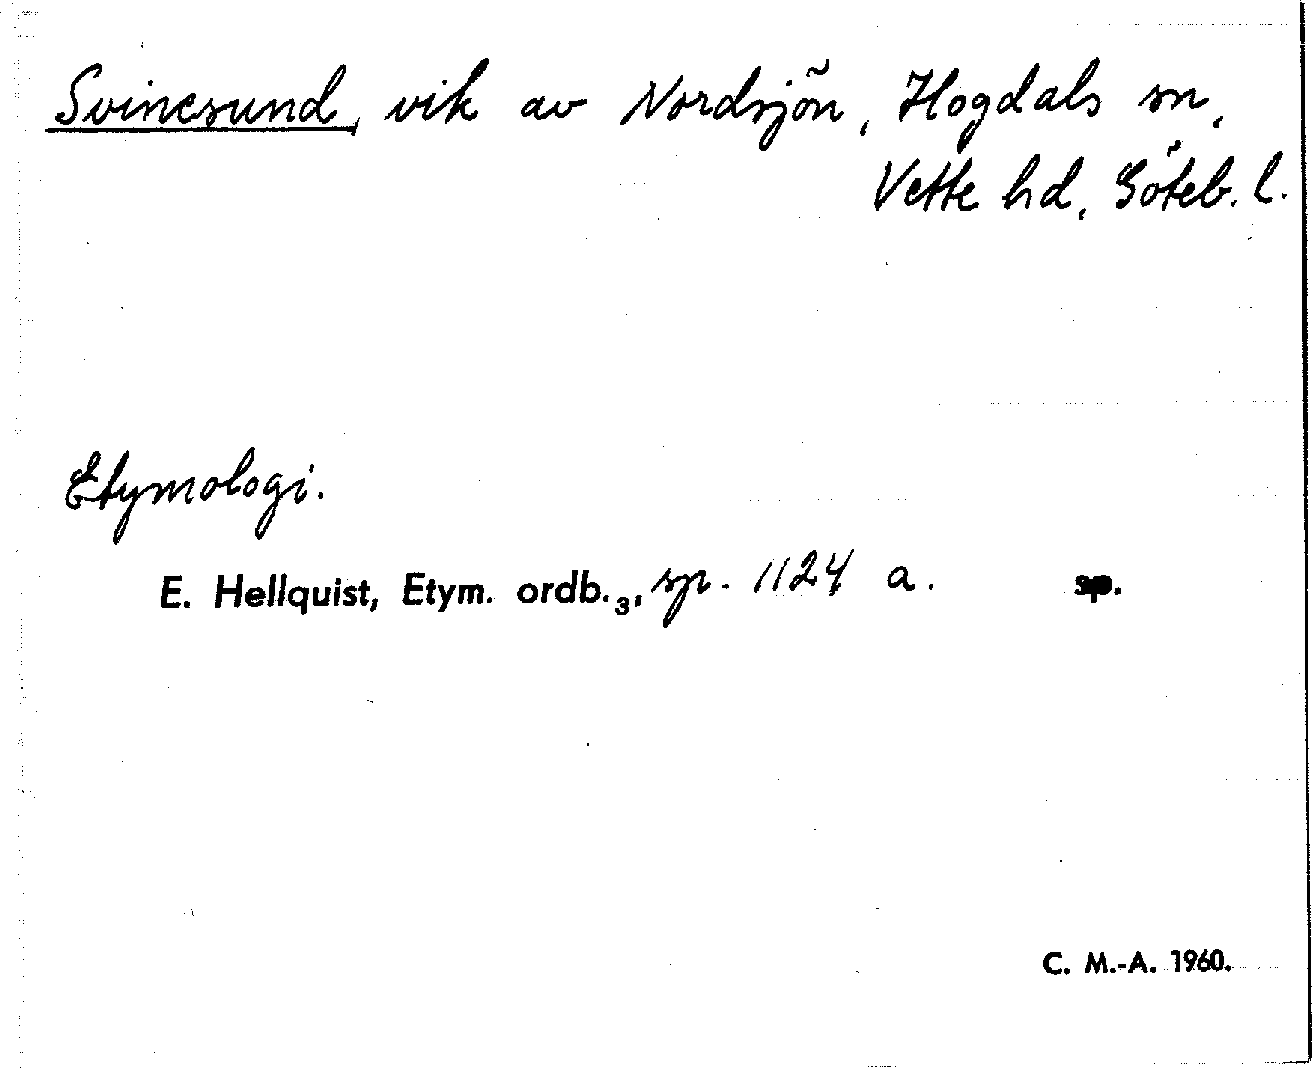 Svinesund, vik av Nordsjön, Hogdals sn,
Vette hd, Göteb. l.
Etymologi.
E. Hellquist, Etym. ordb.₃, sp. 1124 a. sp.
C. M.-A. 1960.